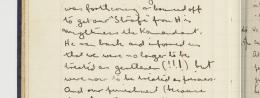 was forthcoming or bounced off
to get our "Strafe" from H is
mightiness the Kommandant.
He came back and informed us
that we were no longer to be
treated as gentlemen (!!!) but
were now to be treated as prisoners.
And our punishment (because